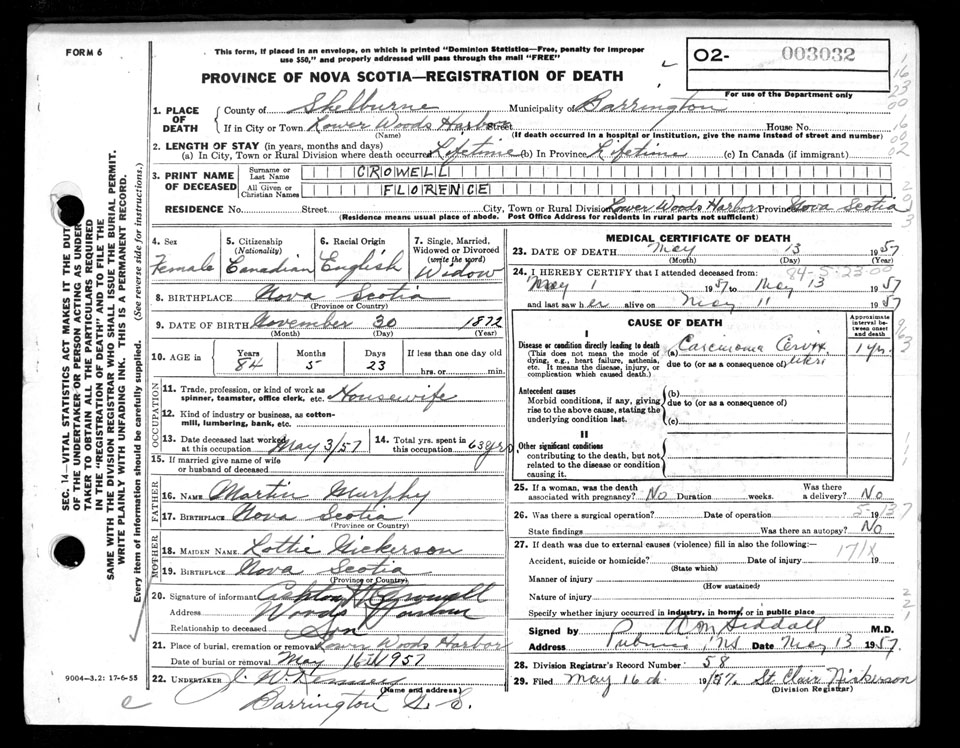 FORM 6
This form, if placed in an envelope, on which is printed "Dominion Statistics—Free, penalty for improper
use $50," and properly addressed will pass through the mail "FREE"
O2- 003032
For use of the Department only
PROVINCE OF NOVA SCOTIA—REGISTRATION OF DEATH
1. PLACE OF DEATH
County of Shelburne Municipality of Barrington
If in City or Town Lower Woods Harbor Street House No.
(Name) (If death occurred in a hospital or institution, give the name instead of street and number)
2. LENGTH OF STAY (in years, months and days)
(a) In City, Town or Rural Division where death occurred Lifetime (b) In Province Lifetime (c) In Canada (if immigrant)
3. PRINT NAME OF DECEASED
Surname or Last Name CROWELL
All Given or Christian Names FLORENCE
RESIDENCE No. Street City, Town or Rural Division Lower Woods Harbor Province Nova Scotia
(Residence means usual place of abode. Post Office Address for residents in rural parts not sufficient)
4. Sex Female
5. Citizenship (Nationality) Canadian
6. Racial Origin English
7. Single, Married, Widowed or Divorced (write the word) Widow
8. BIRTHPLACE Nova Scotia
(Province or Country)
9. DATE OF BIRTH November 30 1872
(Month) (Day) (Year)
10. AGE in Years 84 Months 5 Days 23 If less than one day old
hrs. or min.
OCCUPATION
11. Trade, profession, or kind of work as spinner, teamster, office clerk, etc. Housewife
12. Kind of industry or business, as cotton-mill, lumbering, bank, etc.
13. Date deceased last worked at this occupation May 3/57
14. Total yrs. spent in this occupation 63 yrs
15. If married give name of wife or husband of deceased
FATHER
16. NAME Martin Murphy
17. BIRTHPLACE Nova Scotia
(Province or Country)
MOTHER
18. MAIDEN NAME Lottie Nickerson
19. BIRTHPLACE Nova Scotia
(Province or Country)
20. Signature of informant Crowell
Address Woods Harbor
Relationship to deceased Son
21. Place of burial, cremation or removal Lower Woods Harbor
Date of burial or removal May 16th 1957
22. UNDERTAKER J. W.
(Name and address)
Barrington
9004—3.2: 17-6-55
MEDICAL CERTIFICATE OF DEATH
23. DATE OF DEATH May 13 1957
(Month) (Day) (Year)
84-5-23-00
24. I HEREBY CERTIFY that I attended deceased from:
May 1 1957 to May 13 1957
and last saw her alive on May 11 1957
CAUSE OF DEATH
Approximate interval between onset and death
I
Disease or condition directly leading to death
(This does not mean the mode of dying, e.g., heart failure, asthenia, etc. It means the disease, injury, or complication which caused death.)
(a) Carcinoma Cervix 1 yr.
due to (or as a consequence of) uteri
Antecedent causes
Morbid conditions, if any, giving rise to the above cause, stating the underlying condition last.
(b)
due to (or as a consequence of)
(c)
II
Other significant conditions
contributing to the death, but not related to the disease or condition causing it.
25. If a woman, was the death associated with pregnancy? No Duration weeks. Was there a delivery? No
26. Was there a surgical operation? Date of operation 19
State findings Was there an autopsy? No
27. If death was due to external causes (violence) fill in also the following:—
171X
Accident, suicide or homicide? Date of injury 19
(State which)
Manner of injury
(How sustained)
Nature of injury
Specify whether injury occurred in industry, in home, or in public place
Signed by Siddall M.D.
Address Pubnico NS Date May 13 1957
28. Division Registrar's Record Number 58
29. Filed May 16th 1957 St. Clair Nickerson
(Division Registrar)
SEC. 14—VITAL STATISTICS ACT MAKES IT THE DUTY
OF THE UNDERTAKER OR PERSON ACTING AS UNDERTAKER
TO OBTAIN ALL THE PARTICULARS REQUIRED
IN THE "REGISTRATION OF DEATH" AND TO FILE THE
SAME WITH THE DIVISION REGISTRAR WHO SHALL ISSUE THE BURIAL PERMIT.
WRITE PLAINLY WITH UNFADING INK. THIS IS A PERMANENT RECORD.
Every item of information should be carefully supplied. (See reverse side for instructions.)